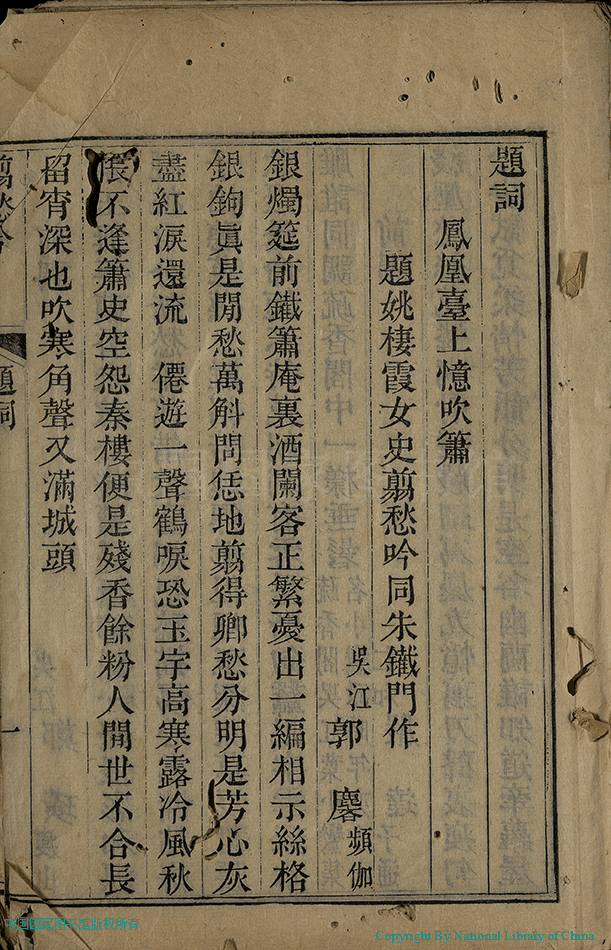 題詞
鳳凰臺上憶吹簫
題姚棲霞女史翦愁吟同朱鐵門作
吳江郭麐頻伽
銀燭筵前鐵簫庵裏酒闌客正繁憂出一編相示絲格
銀鉤眞是閒愁萬斛問恁地翦得卿愁分明是芳心灰
盡紅淚還流　僊遊一聲鶴唳恐玉宇高寒露冷風秋
悵不逢簫史空怨秦樓便是殘香餘粉人間世不合長
留宵深也吹寒角聲又滿城頭
題詞
一
中国国家图书馆版权所有
Copyright By National Library of China